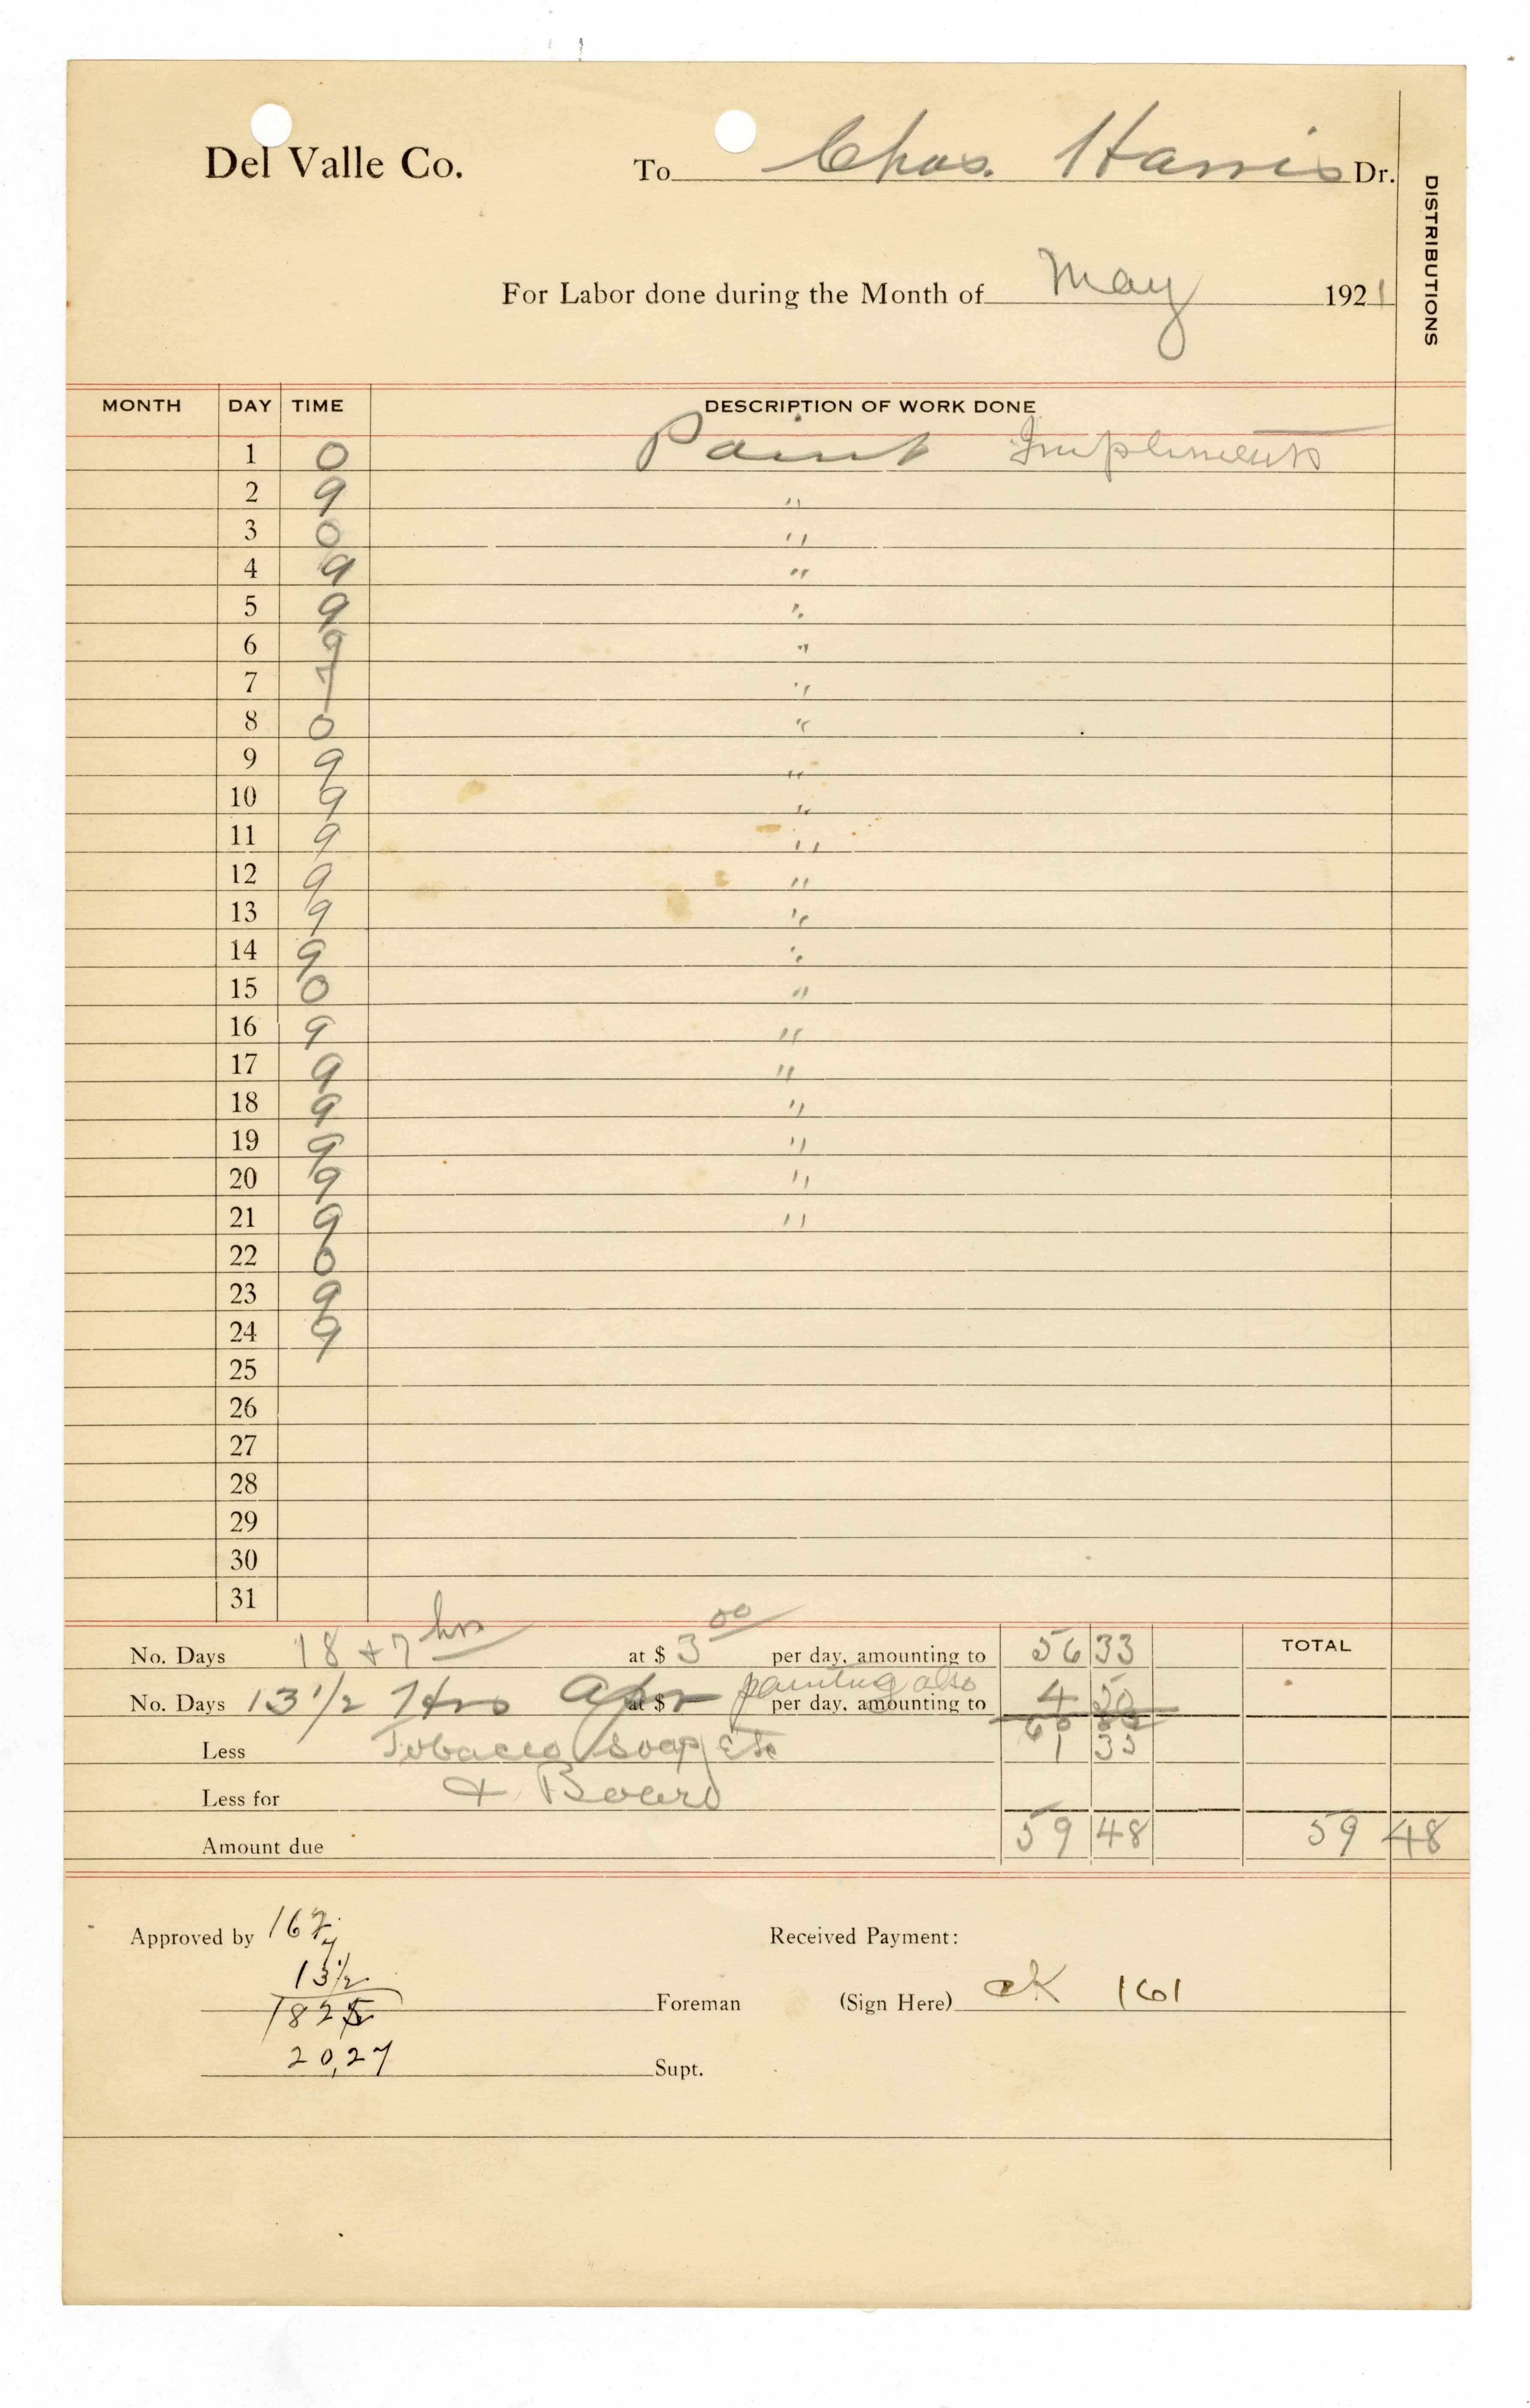 Del Valle Co. To Chas. Harris Dr.
DISTRIBUTIONS
For Labor done during the Month of May 1921
MONTH DAY TIME DESCRIPTION OF WORK DONE
1 0 Paint Impliments
2 9 "
3 0 "
4 9 "
5 9 "
6 9 "
7 7 "
8 0 "
9 9 "
10 9 "
11 9 "
12 9 "
13 9 "
14 9 "
15 0 "
16 9 "
17 9 "
18 9 "
19 9 "
20 9 "
21 9 "
22 0
23 9
24 9
25
26
27
28
29
30
31
No. Days 18 + 7 hrs at $ 3 00 per day, amounting to 56 33 TOTAL
No. Days 13 1/2 Hrs Apr at $ painting also per day, amounting to 4 50
60 83
Less Tobacco soap etc 1 35
Less for & Board
Amount due 59 48 59 48
Approved by 162 Received Payment:
7
13 1/2
182 Foreman (Sign Here) ck 161
20,27 Supt.